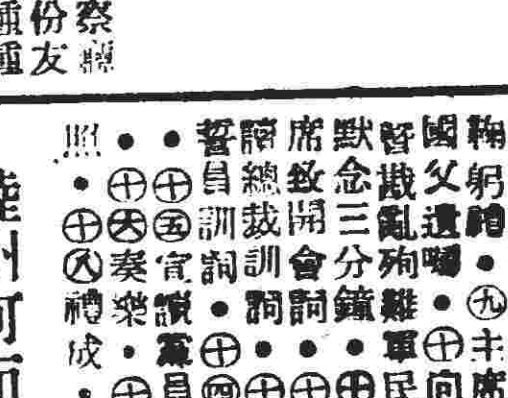 察
份友
鞠躬禮●㊈主席
國父遺囑●㊉向
暨戡亂殉難軍民
默念三分鐘●㊉
席致開會詞●㊉
讀總裁訓詞●㊉
誓員訓詞●㊉㊃
●㊉㊄宣讀黨員
●㊉㊅奏樂●㊉
照●㊉㊇禮成●